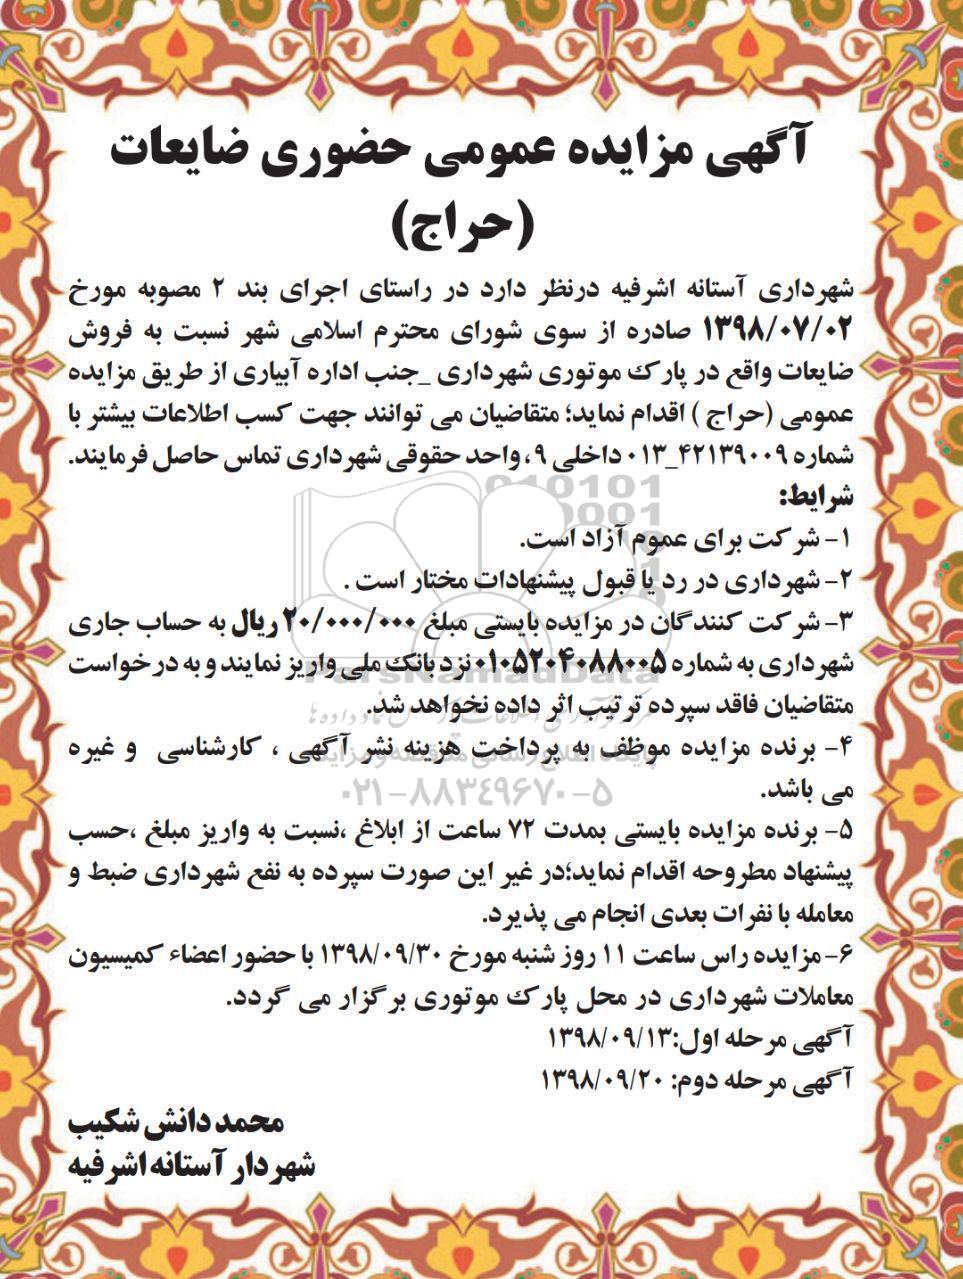 آگهی مزایده عمومی حضوری ضایعات
(حراج)
شهرداری آستانه اشرفیه درنظر دارد در راستای اجرای بند ۲ مصوبه مورخ
۱۳۹۸/۰۷/۰۲ صادره از سوی شورای محترم اسلامی شهر نسبت به فروش
ضایعات واقع در پارک موتوری شهرداری _جنب اداره آبیاری از طریق مزایده
عمومی (حراج ) اقدام نماید؛ متقاضیان می توانند جهت کسب اطلاعات بیشتر با
شماره ۴۲۱۳۹۰۰۹_۰۱۳ داخلی ۹ ، واحد حقوقی شهرداری تماس حاصل فرمایند.
شرایط:
۱- شرکت برای عموم آزاد است.
۲- شهرداری در رد یا قبول پیشنهادات مختار است .
۳- شرکت کنندگان در مزایده بایستی مبلغ ۲۰/۰۰۰/۰۰۰ ریال به حساب جاری
شهرداری به شماره ۰۱۰۵۲۰۴۰۸۸۰۰۵ نزد بانک ملی واریز نمایند و به درخواست
متقاضیان فاقد سپرده ترتیب اثر داده نخواهد شد.
۴- برنده مزایده موظف به پرداخت هزینه نشر آگهی ، کارشناسی و غیره
می باشد.
۵- برنده مزایده بایستی بمدت ۷۲ ساعت از ابلاغ ،نسبت به واریز مبلغ ،حسب
پیشنهاد مطروحه اقدام نماید؛در غیر این صورت سپرده به نفع شهرداری ضبط و
معامله با نفرات بعدی انجام می پذیرد.
۶- مزایده راس ساعت ۱۱ روز شنبه مورخ ۱۳۹۸/۰۹/۳۰ با حضور اعضاء کمیسیون
معاملات شهرداری در محل پارک موتوری برگزار می گردد.
آگهی مرحله اول:۱۳۹۸/۰۹/۱۳
آگهی مرحله دوم: ۱۳۹۸/۰۹/۲۰
محمد دانش شکیب
شهردار آستانه اشرفیه
ParsNamadData
۰۲۱-۸۸۳۴۹۶۷۰-۵